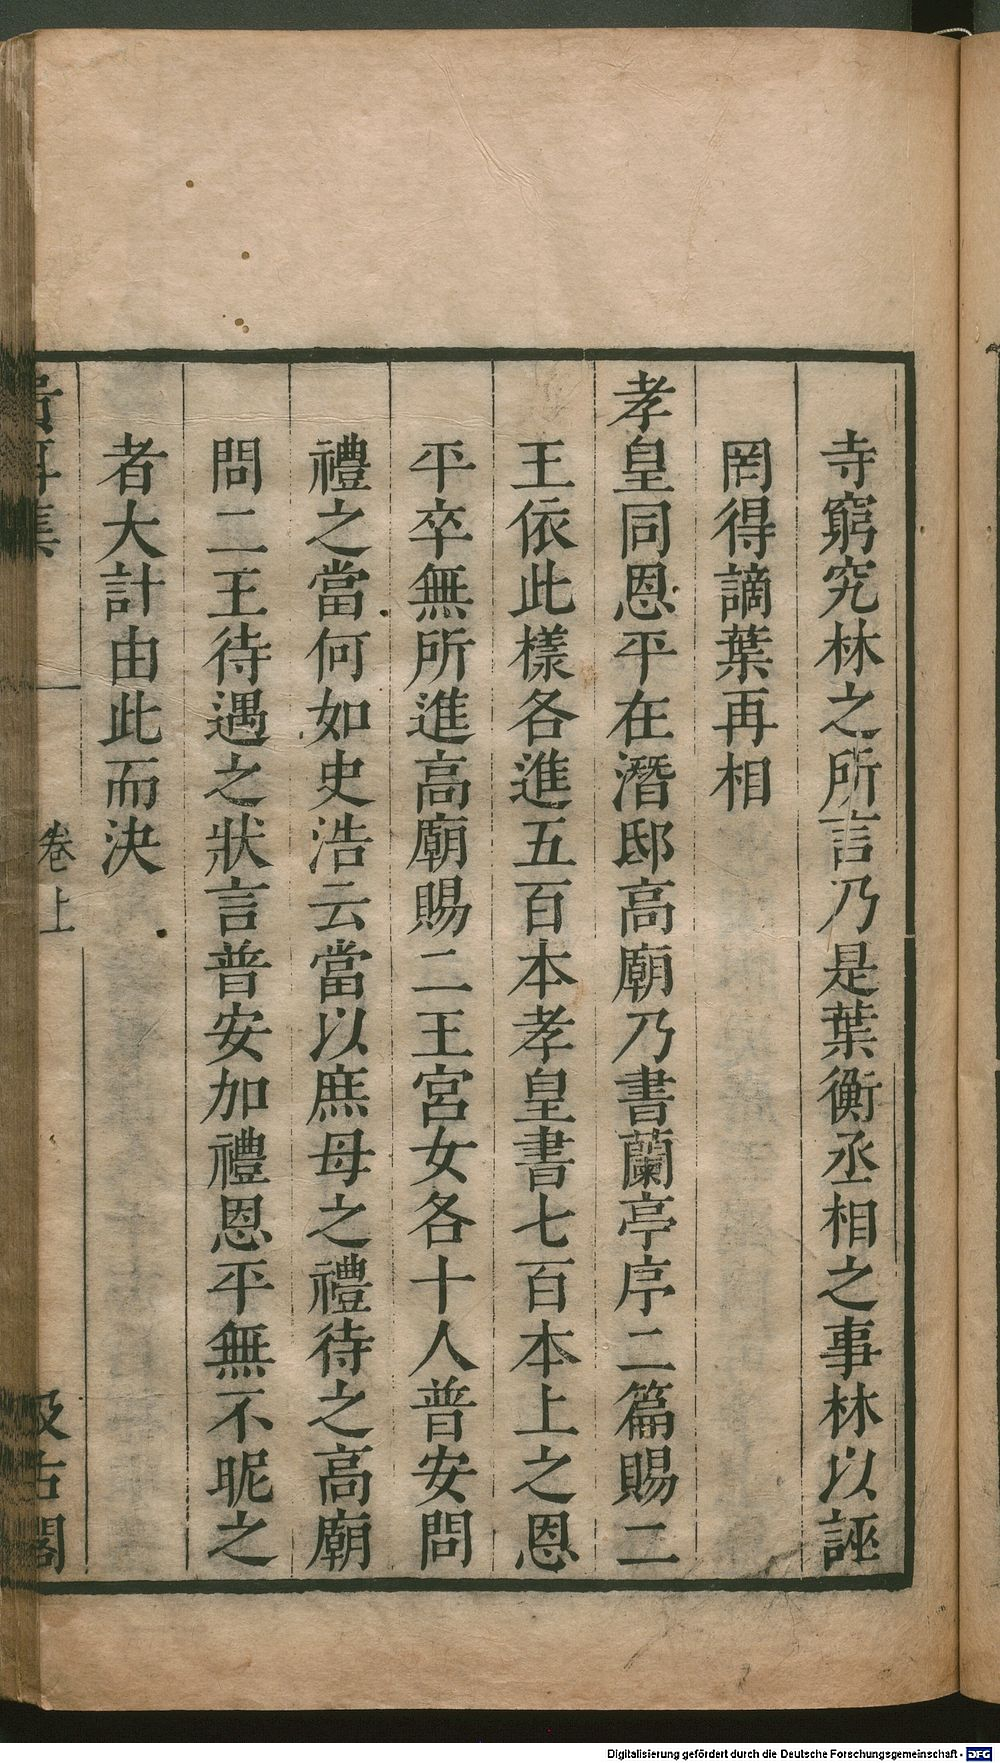 寺窮究林之所言乃是葉衡丞相之事林以誣
罔得謫葉再相
孝皇同恩平在潛邸高廟乃書蘭亭序二篇賜二
王依此樣各進五百本孝皇書七百本上之恩
平卒無所進高廟賜二王宮女各十人普安問
禮之當何如史浩云當以庶母之禮待之高廟
問二王待遇之狀言普安加禮恩平無不昵之
者大計由此而決
貴耳集 一 卷上 汲古閣
Digitalisierung gefördert durch die Deutsche Forschungsgemeinschaft - DFG